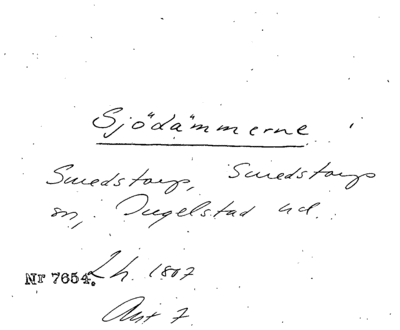 Sjödämmerne
Smedstorp, Smedstorps
sn, Ingelstad hd.
Nr 7654. Lh. 1807
Akt 7